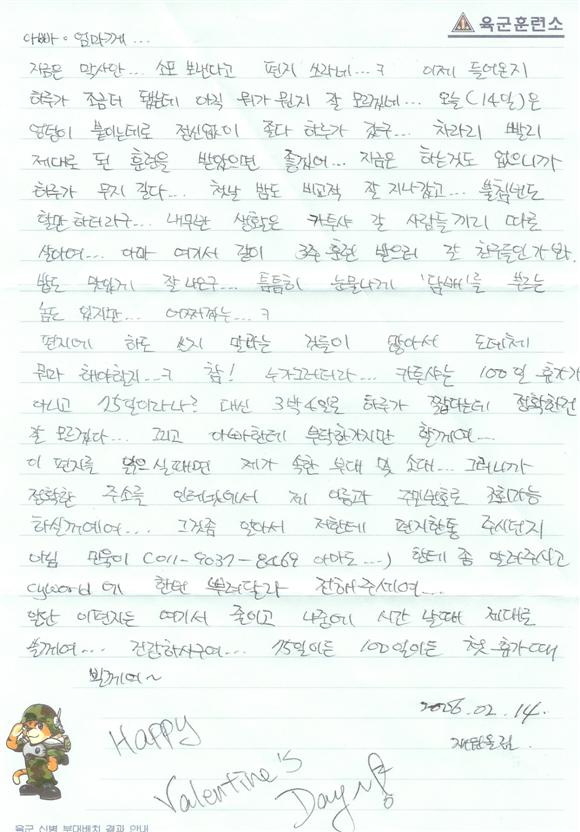 육군훈련소
아빠.엄마께...
지금은 막사안... 소포 보낸다고 편지 쓰라네...ㅋ 이제 들어온지
하루가 조금더 됐는데 아직 뭐가 뭔지 잘 모르겠네... 오늘(14일)은
엉덩이 붙이는데로 정신없이 졸다 하루가 갔구... 차라리 빨리
제대로 된 훈련을 받았으면 좋겠어... 지금은 하는것도 없으니까
하루가 무지 길다... 첫날 밤도 비교적 잘 지나갔고... 불침번도
할만 하더라구... 내무반 생활은 카투사 갈 사람들끼리 따로
살아여... 아마 여기서 같이 3주 훈련 받으러 갈 친구들인가봐.
밥도 맛있게 잘 나오구... 틈틈히 눈물나게 '담배'를 부르는
놈도 있지만... 어쩌라는...ㅋ
편지에 하도 쓰지 말라는 것들이 많아서 도데체
뭔과 해야할지...ㅋ 참! 누가그러더라... 카투사는 100일 휴가가
아니고 75일이라나? 대신 3박4일로 하루가 짧다는데 정확한건
잘 모르겠다... 그리고 아빠한테 부탁한가지만 할께여...
이 편지를 읽으실때면 제가 속한 부대 및 소대... 그러니까
정확한 주소를 인터넷에서 제 이름과 주민번호로 조회가능
하실꺼에여... 그것좀 알아서 저한테 편지한통 주시던지
아님 민욱이 (011-9037-8469 아마도...) 한테 좀 알려주시고
cyworld 에 한번 뿌려달라 전해주세여...
일단 이편지는 여기서 줄이고 나중에 시간 날때 제대로
쓸께여... 건강하시구여... 75일이든 100일이든 첫 휴가때
뵐께여~
02. 14.
올림
Happy
Valentine's
Day
육군 신병 부대배치 결과 안내